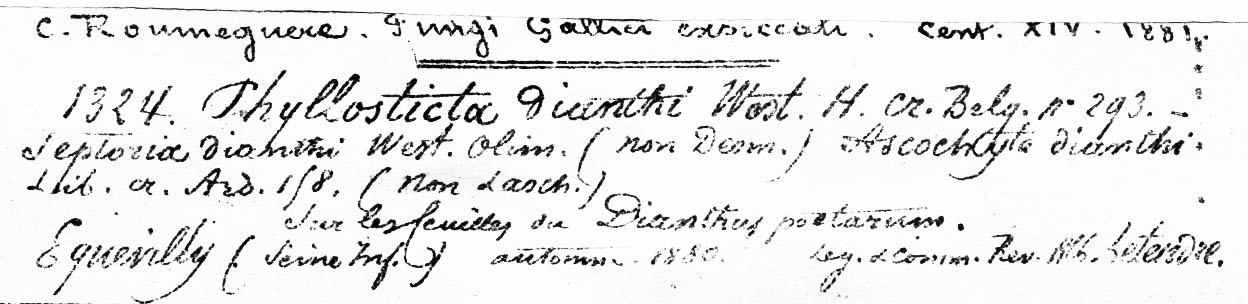 C. Roumeguère. Fungi Gallici exsiccati. Cent. XIV. 1881.
1324. Phyllosticta Dianthi West. H. cr. Belg. n° 293. –
Septoria Dianthi West. Olim. (non Desm.) Ascochyta dianthi.
Lib. cr. Ard. 158. (Non Lasch.)
Sur les feuilles du Dianthus poetarum.
(Seine Inf.) automne 1880. Leg. & comm. Rev. Letendre.